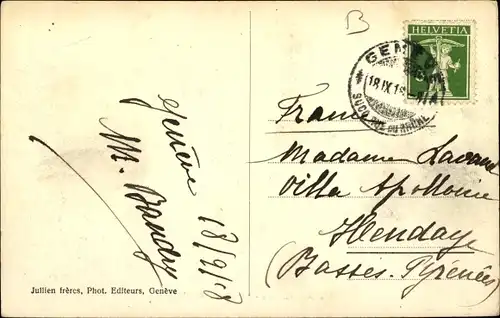 B
HELVETIA
GENÈVE
18.IX.18
SUCC. RUE DU RHÔNE
Genève 18/9/18
M.
France
Madame
Villa Apolloine
Hendaye
(Basses-Pyrénées)
Jullien frères, Phot. Editeurs, Genève